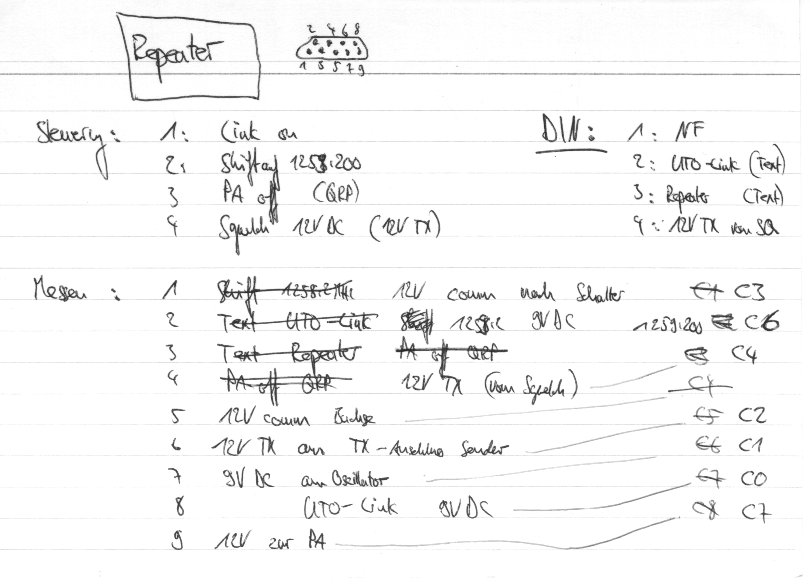 Repeater
2 4 6 8
1 3 5 7 9
Steuerung: 1: Link on
2: Shift auf 1258.200
3 PA off (QRP)
4 Squelch 12V DC (12V TX)
DIN: 1: NF
2: UTO-Link (Text)
3: Repeater (Text)
4: 12V TX von SQ
Messen: 1 Shift 1258.2 MHz 12V comm nach Schalter C1 C3
2 Text UTO-Link Shift 1258.2 9V DC 1259.200 C6
3 Text Repeater PA off QRP C3 C4
4 PA off QRP 12V TX (vom Squelch) C4
5 12V comm Buchse C5 C2
6 12V TX am TX-Anschluss Sender C6 C1
7 9V DC am Oszillator C7 C0
8 UTO-Link 9V DC C8 C7
9 12V zur PA